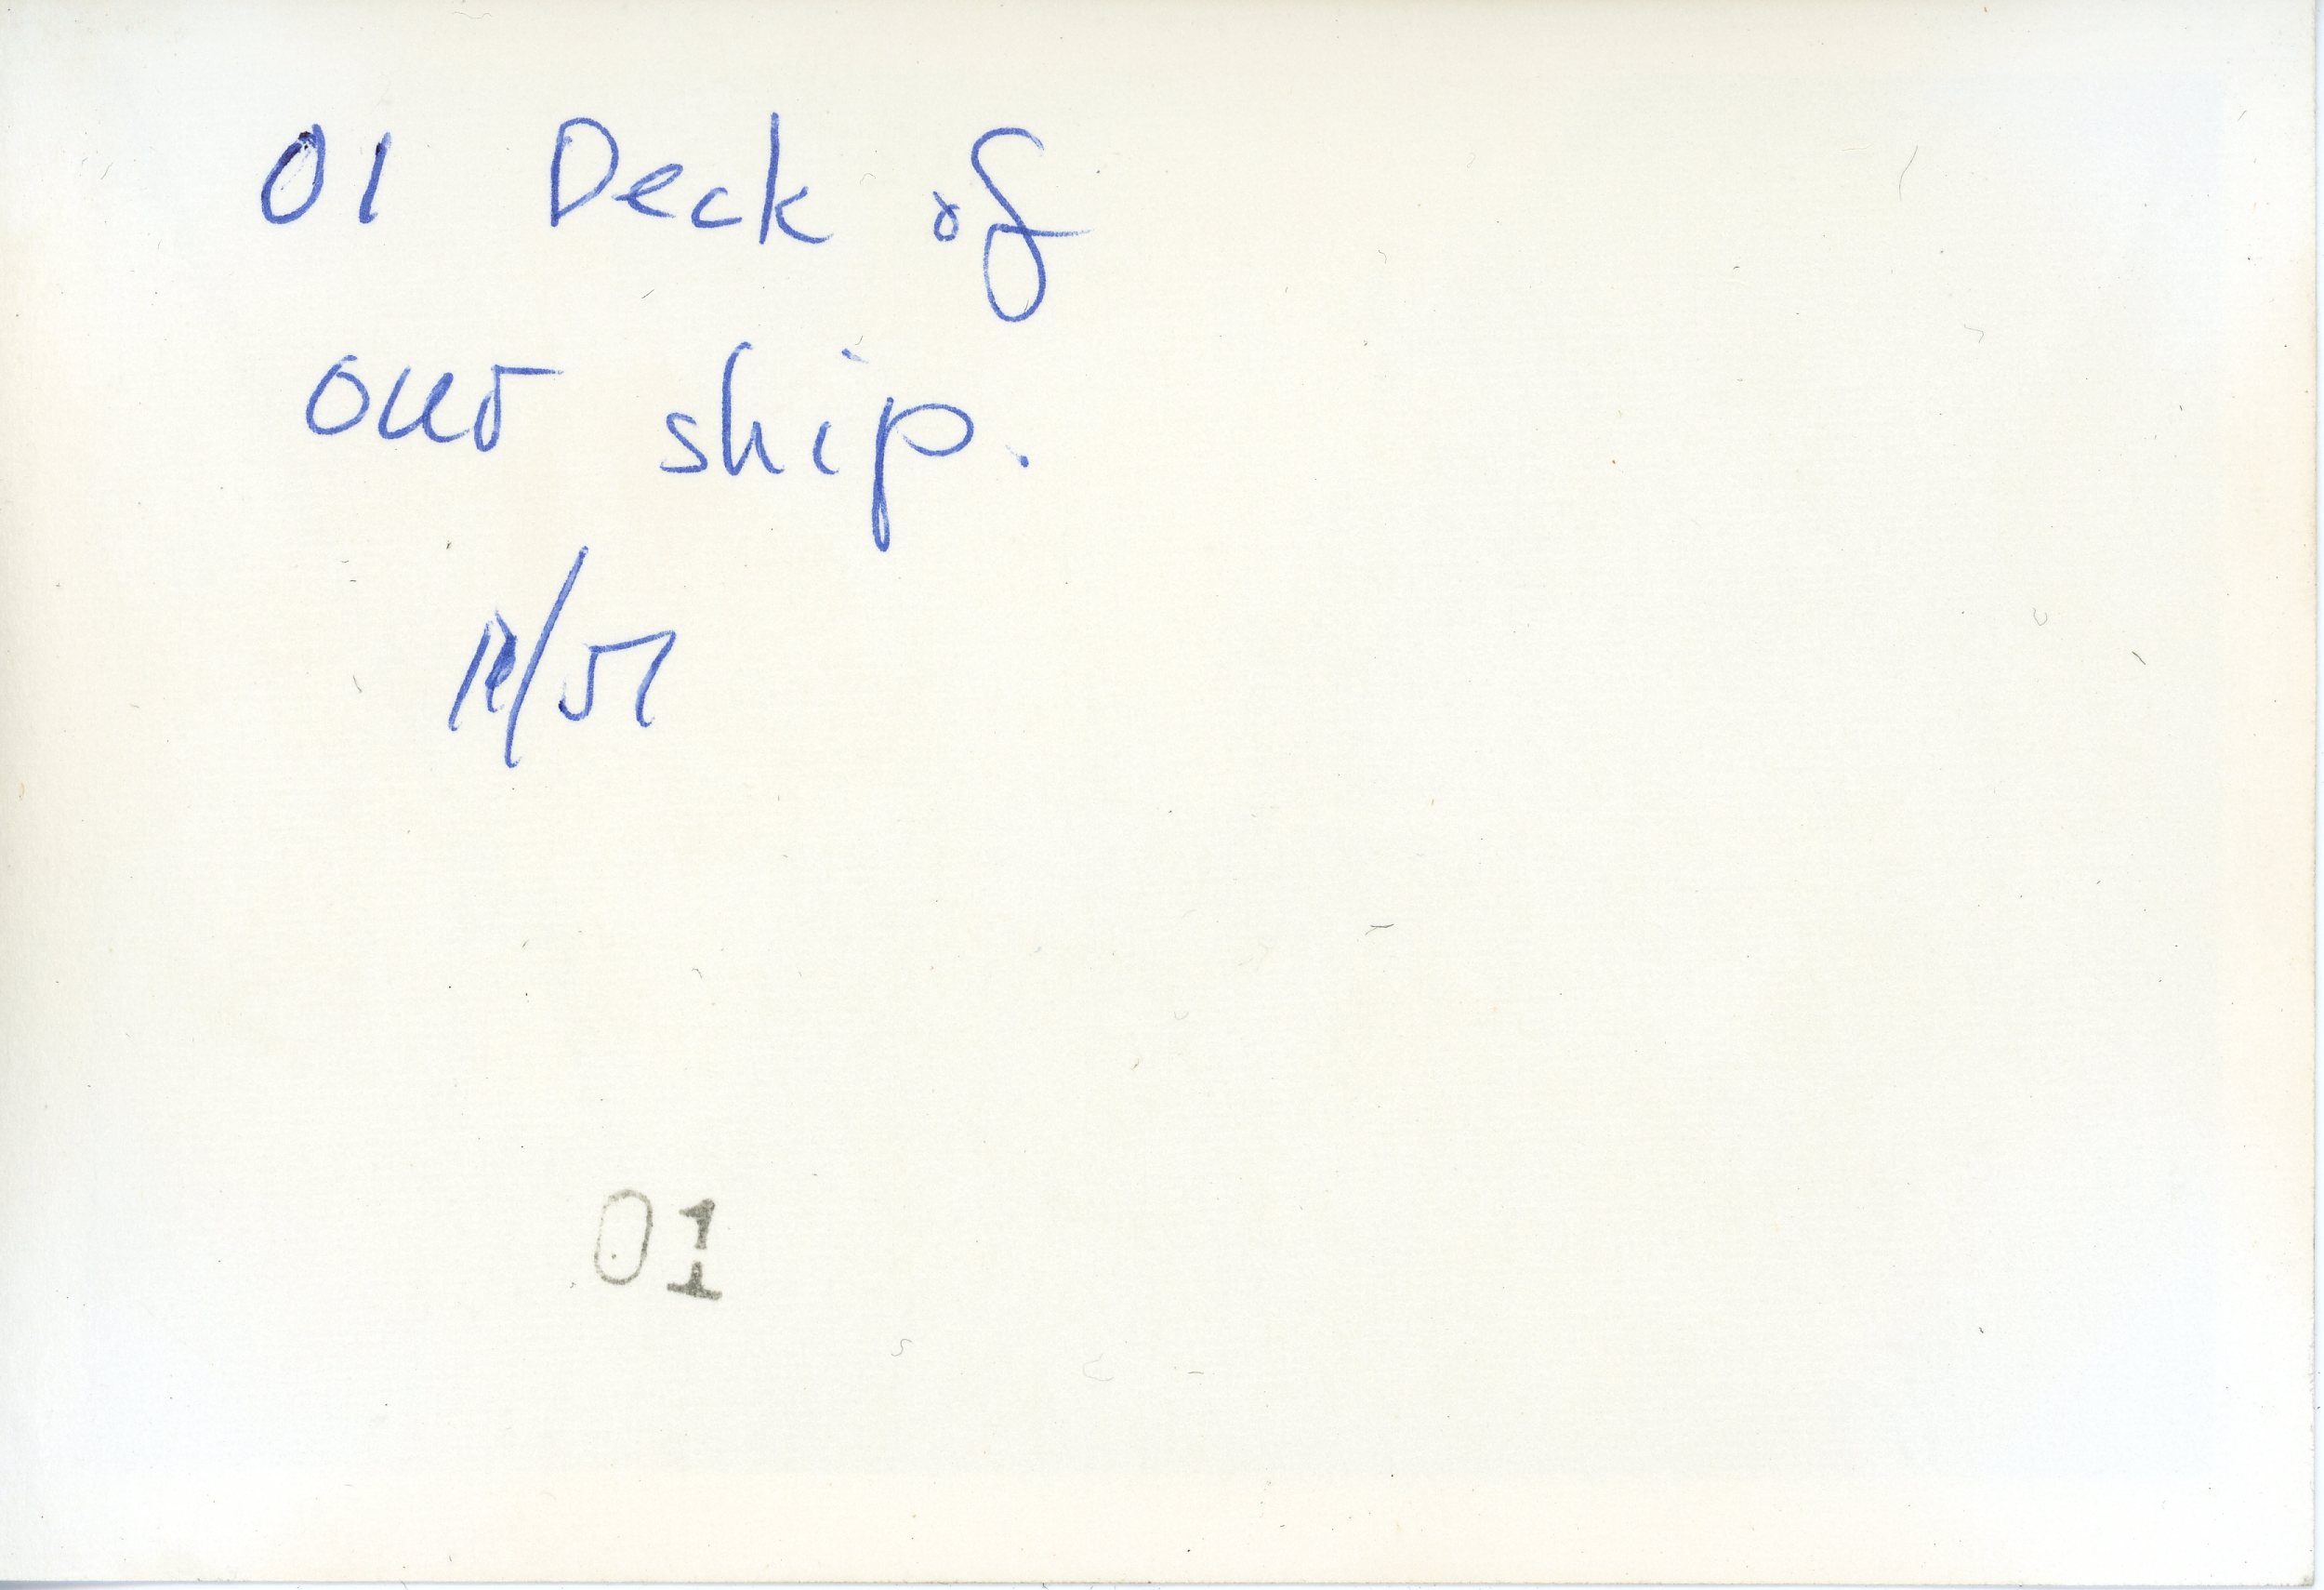 01 Deck of
our ship.
01